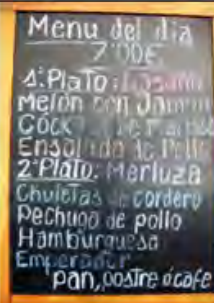 Menu del dia
7'00€
1º Plato:
Melón con Jamón
Cock
Ensalada de Pollo
2º Plato: Merluza
Chuletas de cordero
Pechuga de pollo
Hamburguesa
Emperador
pan, postre ó cafe